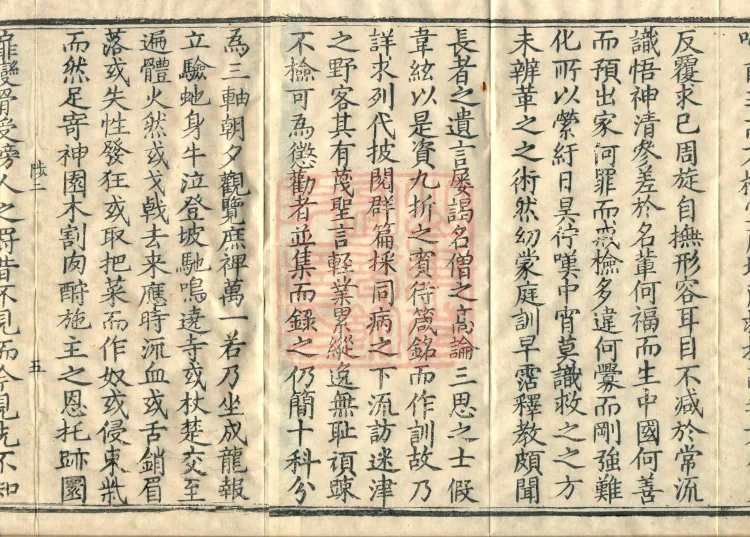 反覆求已周旋自撫形容耳目不減於常流
識悟神清參差於名輩何福而生中國何善
而預出家何罪而戒檢多違何釁而剛強難
化所以縈紆日昃佇嘆中宵莫識救之之方
未辨革之之術然幼蒙庭訓早霑釋教頗聞
長者之遺言屢謁名僧之高論三思之士假
韋絃以是資九折之賓待箴銘而作訓故乃
詳求列代披閱群篇採同病之下流訪迷津
之野客其有蔑聖言輕業累縱逸無恥頑踈
不檢可為懲勸者並集而錄之仍簡十科分
為三軸朝夕觀覽庶裨萬一若乃坐成龍報
立驗虵身牛泣登坡馳鳴遶寺或杖楚交至
遍體火然或戈戟去來應時流血或舌銷眉
落或失性發狂或取把菜而作奴或侵束柴
而然足寄神園木割肉酧施主之恩托跡圂
五